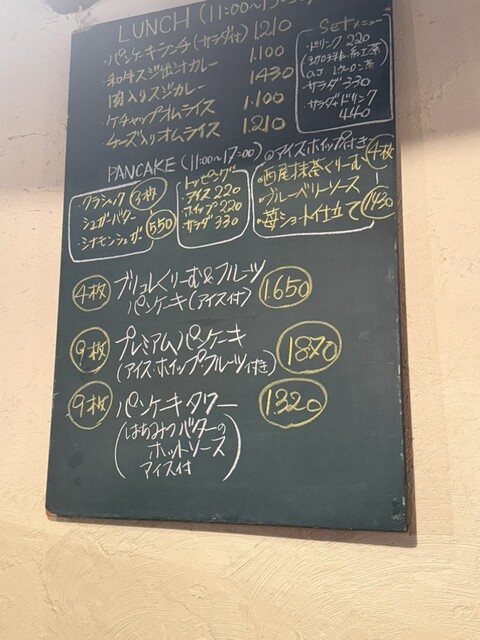 LUNCH (11:00~15:00)
・パンケーキランチ(サラダ付) 1210
・和牛スジ出汁カレー 1.100
肉入りスジカレー 1430
・ケチャップオムライス 1.100
・チーズ入りオムライス 1.210
Setメニュー
・ドリンク 220
・サラダ 330
・サラダ+ドリンク
440
PANCAKE (11:00~17:00)
・クラシック 3枚
シュガーバター
・シナモンシュガー 550
トッピング
アイス 220
ホイップ 220
サラダ 330
◎アイスホイップ付き 4枚
・西尾抹茶くりーむ
・ブルーベリーソース
・苺ショート仕立て 1430
4枚 ブリュレくりーむ&フルーツ
パンケーキ(アイス付) 1.650
9枚 プレミアムパンケーキ 1870
(アイス・ホイップ・フルーツ付き)
9枚 パンケーキタワー 1.320
(はちみつバターの
ホットソース
アイス付)